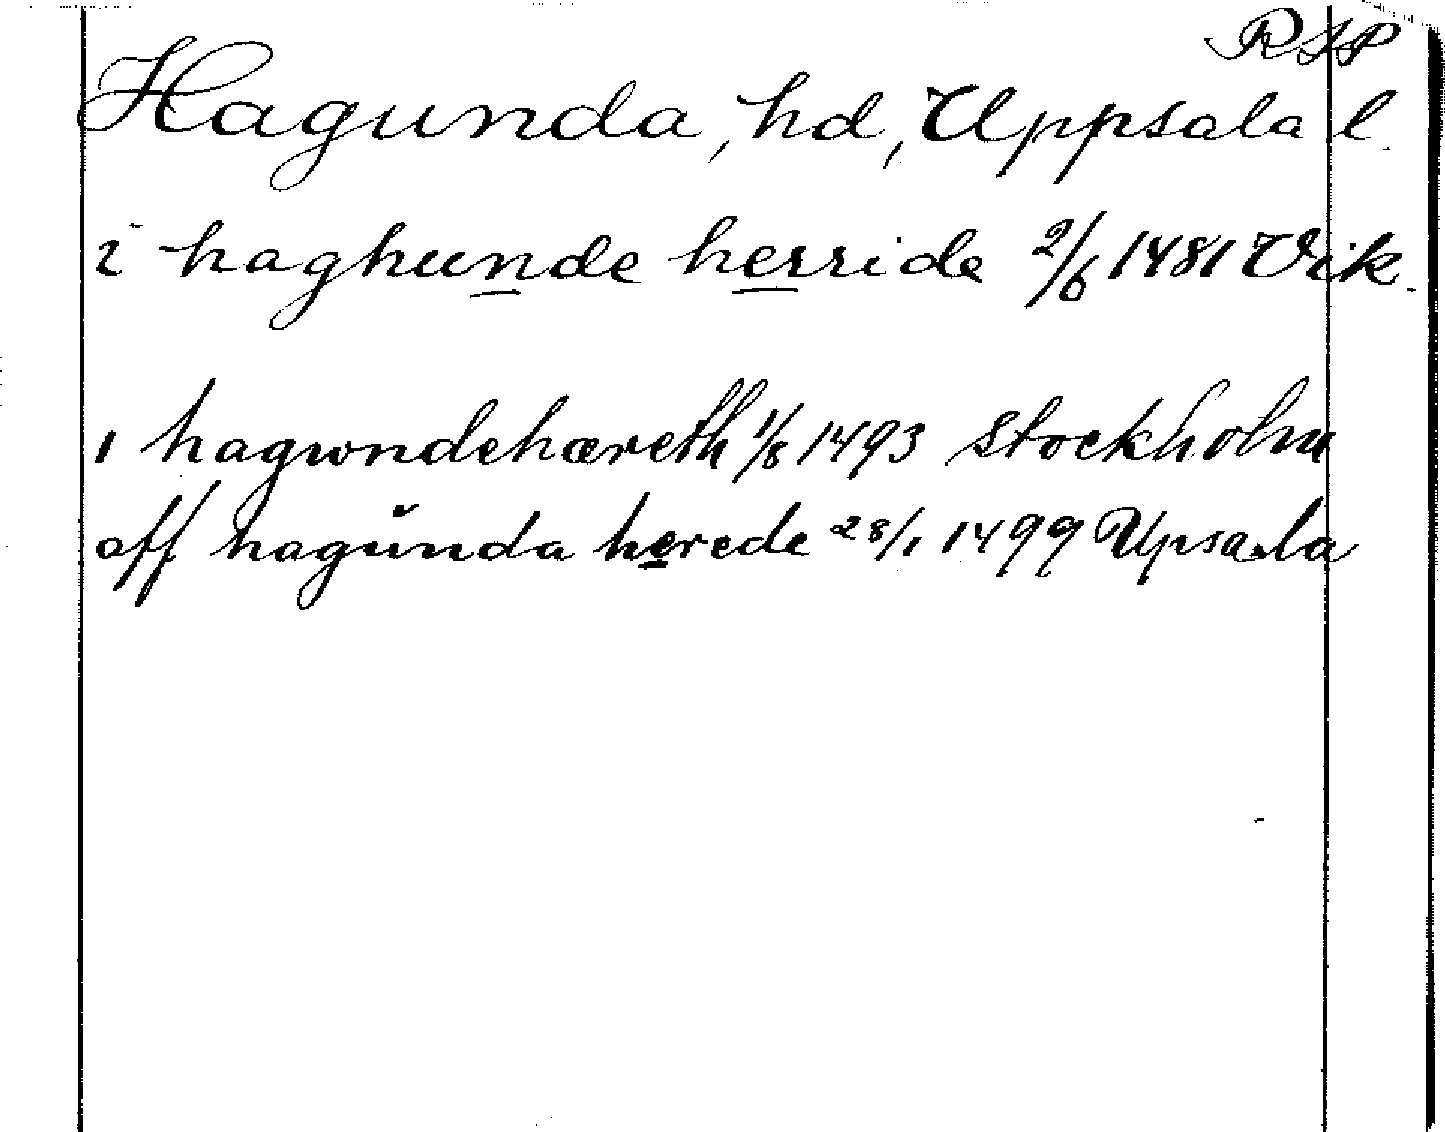 RSP
Hagunda, hd, Uppsala l.
i haghunde herride 2/6 1481 Vik.
i hagwndehæreth 1/8 1493 Stockholm
aff hagŭnda herede 28/1 1499 Upsala